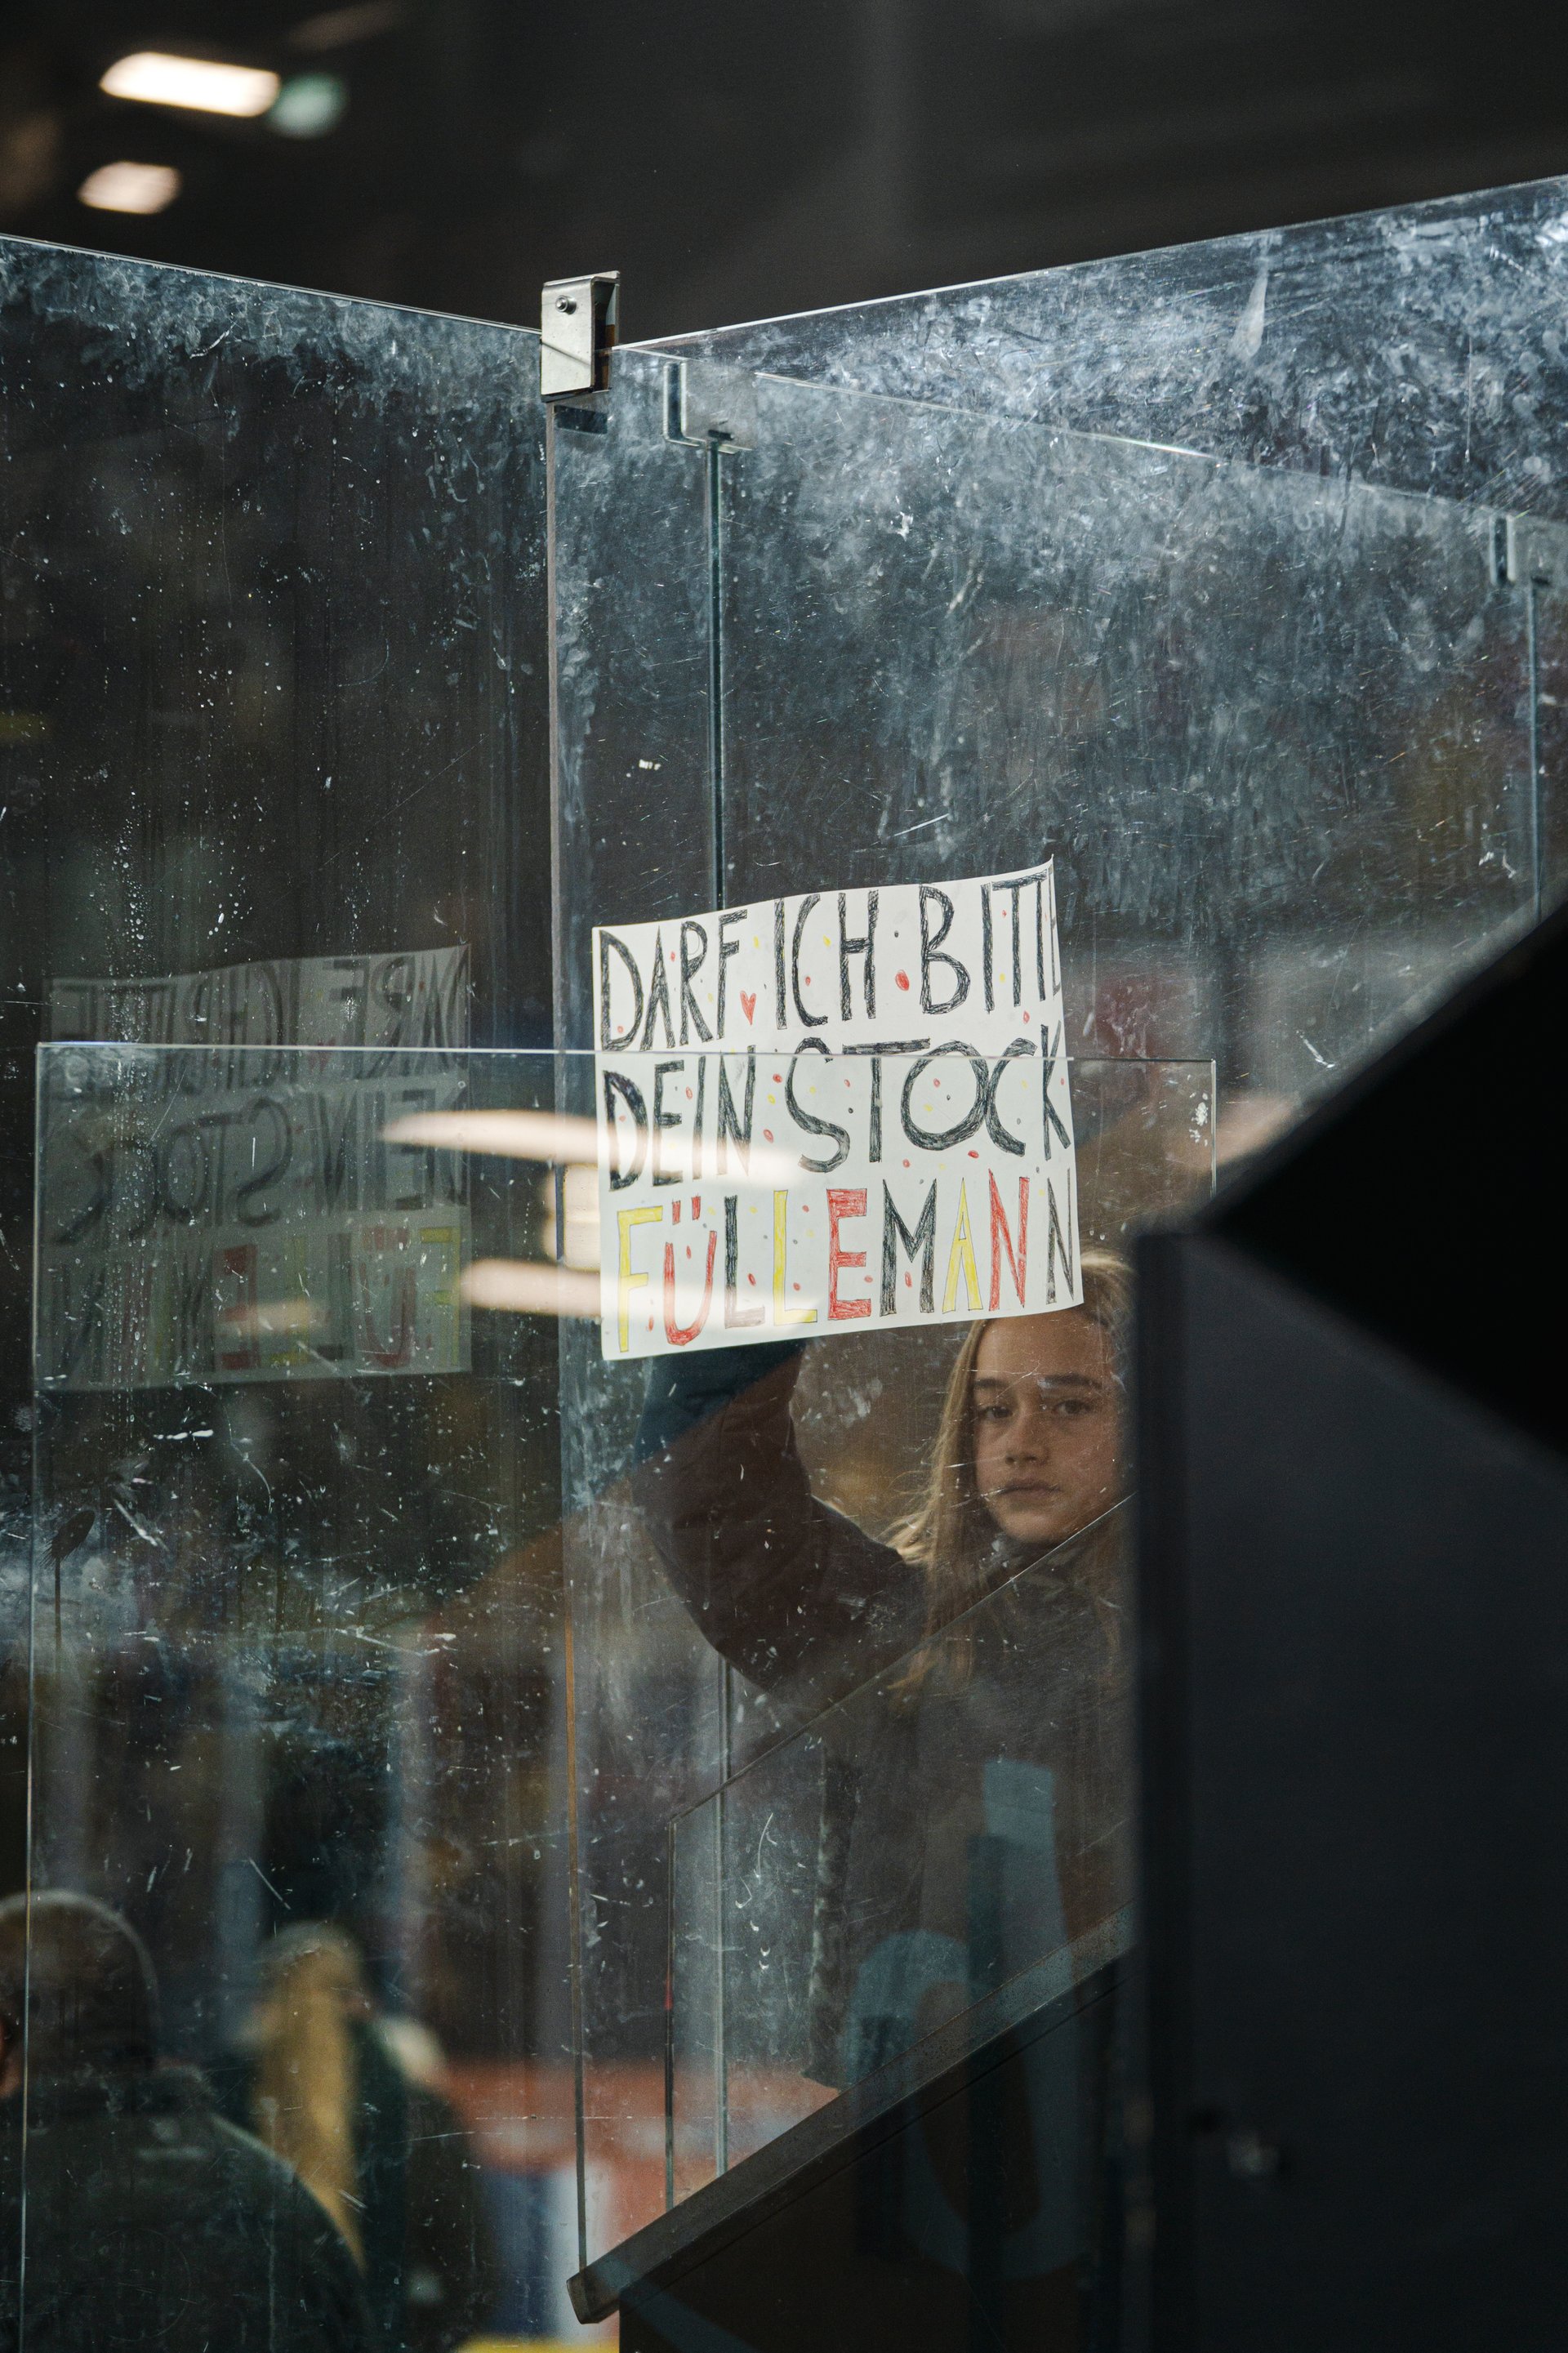 DARF ICH BITTE
DEIN STOCK
FÜLLEMANN